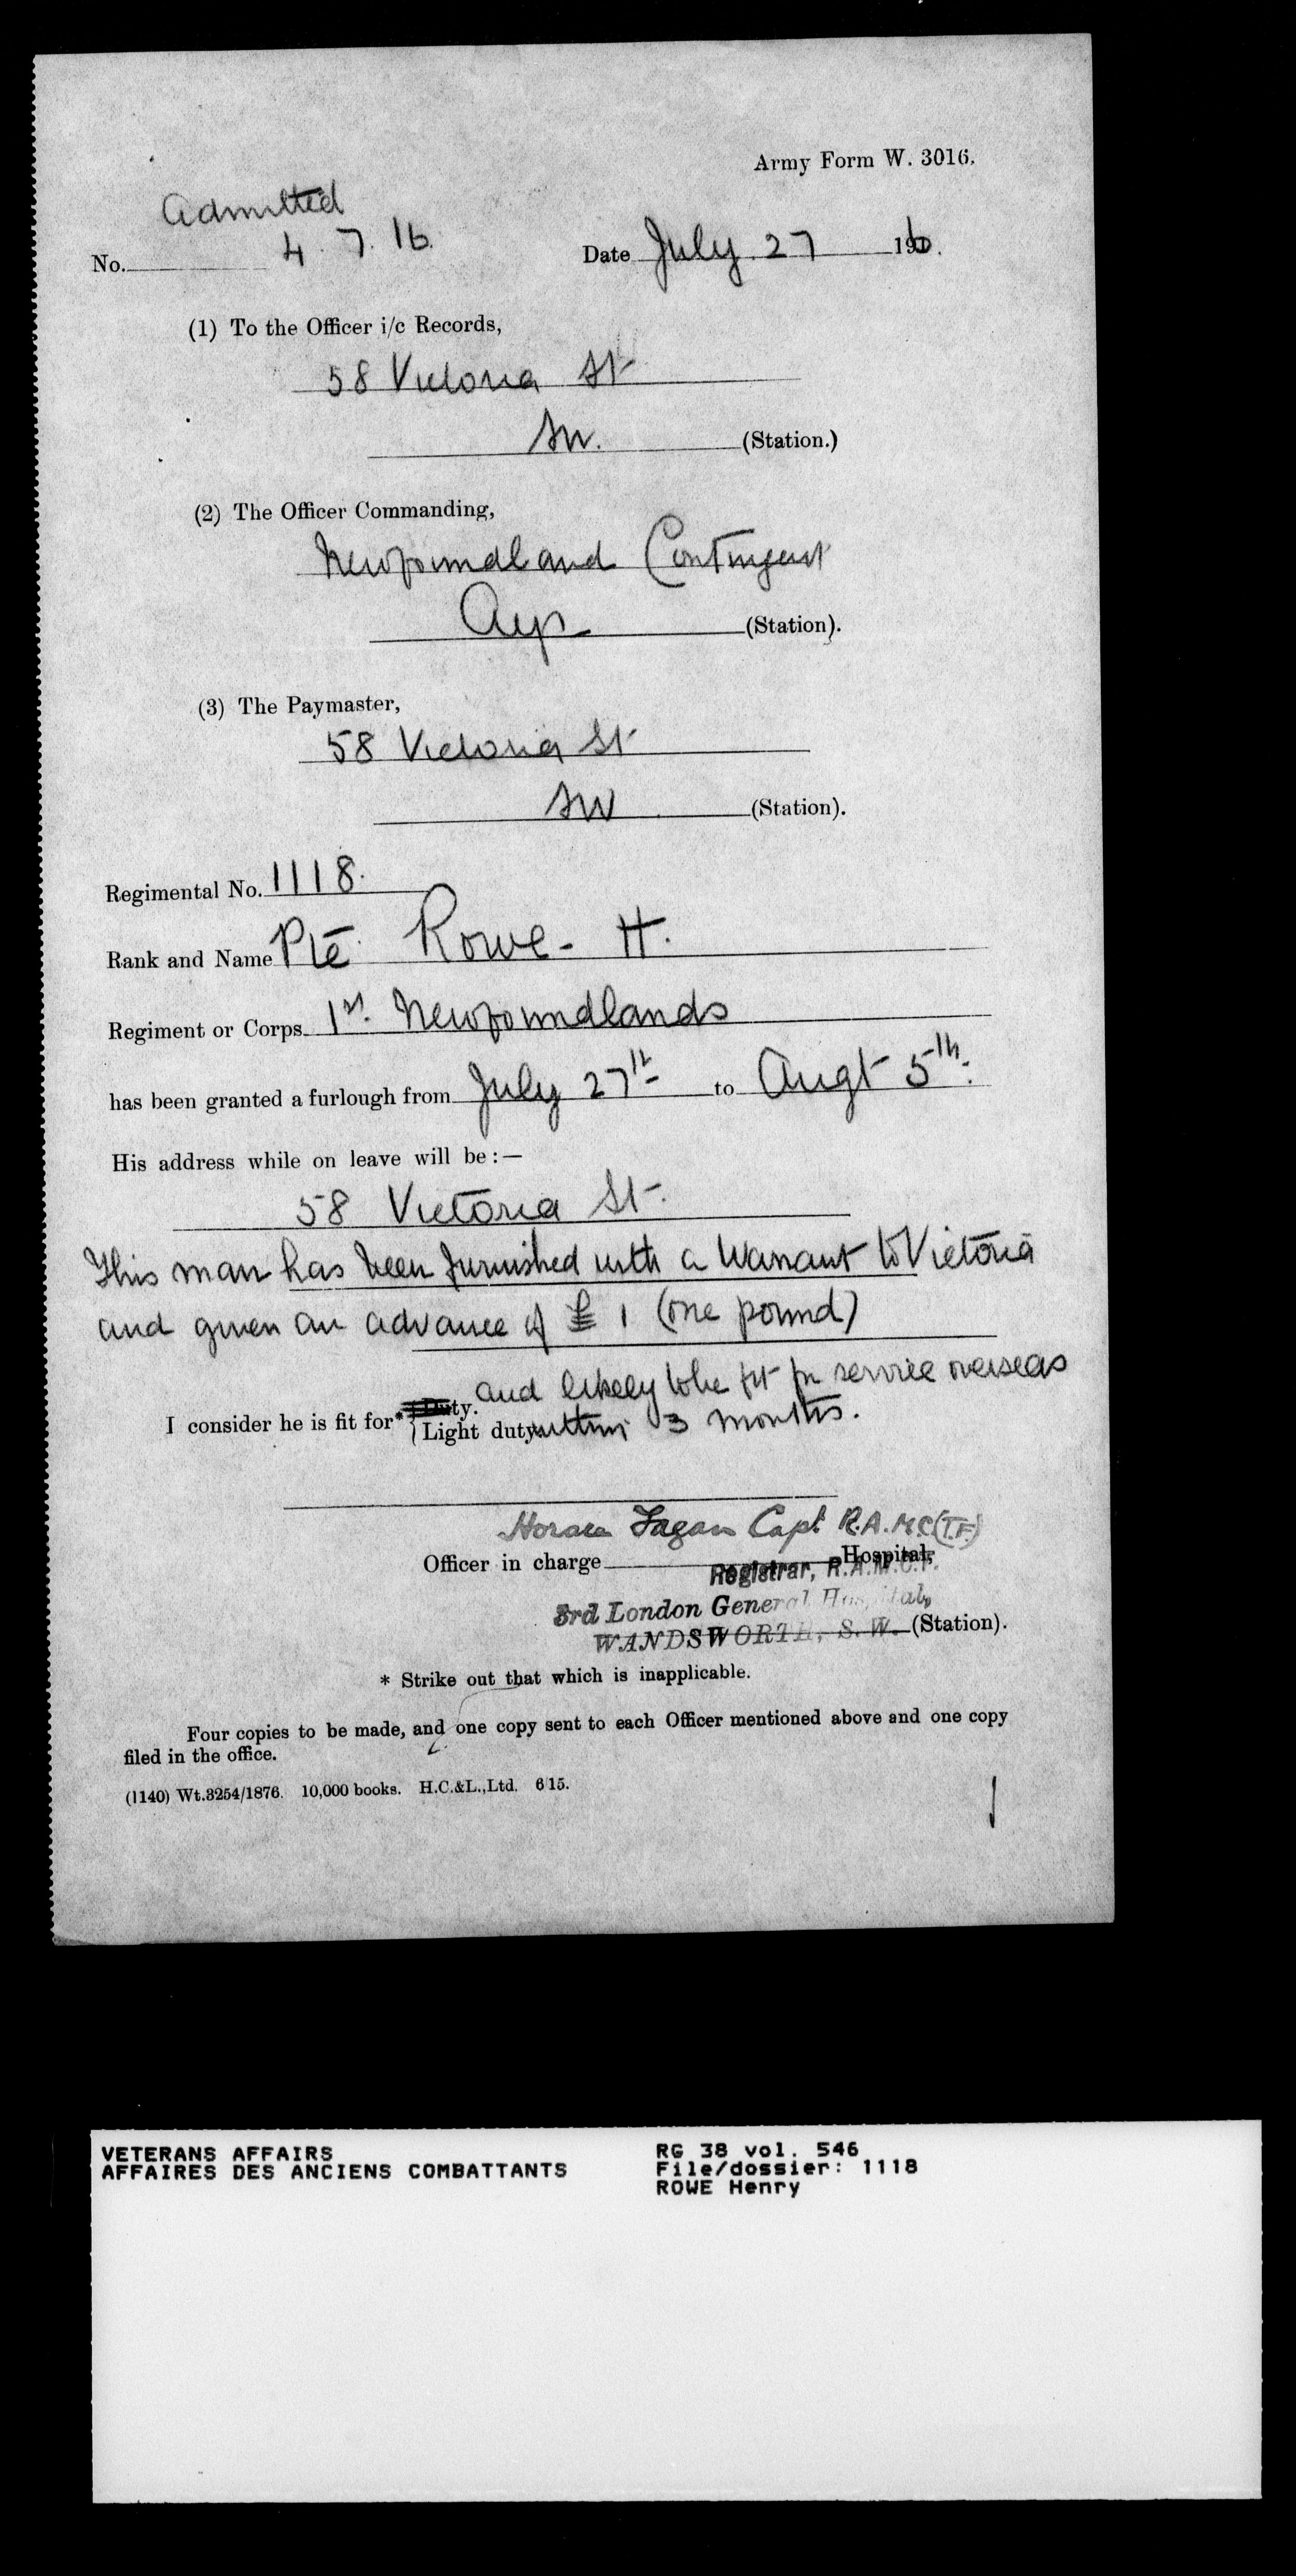 Army Form W. 3016.
Admitted
No. 4.7.16.
Date July 27 1916.
(1) To the Officer i/c Records,
58 Victoria St
SW. (Station.)
(2) The Officer Commanding,
Newfoundland Contingent
Ayr (Station).
(3) The Paymaster,
58 Victoria St
SW (Station).
Regimental No. 1118.
Rank and Name Pte Rowe - H.
Regiment or Corps 1st. Newfoundlands
has been granted a furlough from July 27th to Augt 5th.
His address while on leave will be:—
58 Victoria St.
This man has been furnished with a Warrant to Victoria
and given an advance of £ 1 (one pound)
and likely to be fit for service overseas
I consider he is fit for* { Duty.
Light duty within 3 months.
Horace Fagan Capt. R.A.M.C (T.F.)
Officer in charge Hospital,
Registrar, R.A.M.C.T.
3rd London General Hospital,
WANDSWORTH, S. W. (Station).
* Strike out that which is inapplicable.
Four copies to be made, and one copy sent to each Officer mentioned above and one copy
filed in the office.
(1140) Wt.3254/1876. 10,000 books. H.C.&L.,Ltd. 6/15.
VETERANS AFFAIRS
AFFAIRES DES ANCIENS COMBATTANTS
RG 38 vol. 546
File/dossier: 1118
ROWE Henry